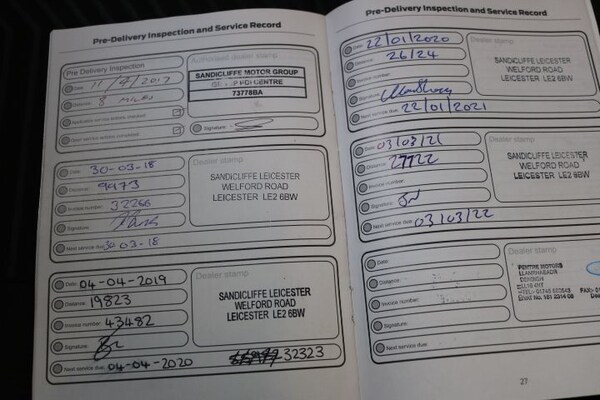 Pre-Delivery Inspection and Service Record
Pre Delivery Inspection
Date: 11/9/2017
Distance: 8 MILES
Authorised dealer stamp
SANDICLIFFE MOTOR GROUP
CENTRE
73778BA
Signature:
Date: 30-03-18
Distance: 9973
Invoice number: 32266
Signature:
Next service due: 30-03-18
Dealer stamp
SANDICLIFFE LEICESTER
WELFORD ROAD
LEICESTER LE2 6BW
Date: 04-04-2019
Distance: 19823
Invoice number: 43482
Signature:
Next service due: 04-04-2020
32323
Dealer stamp
SANDICLIFFE LEICESTER
WELFORD ROAD
LEICESTER LE2 6BW
Pre-Delivery Inspection and Service Record
Date: 22/01/2020
Distance: 26124
Invoice number:
Signature:
Next service due: 22/01/2021
SANDICLIFFE LEICESTER
WELFORD ROAD
LEICESTER LE2 6BW
Date: 03/03/21
Distance: 27722
Invoice number:
Signature:
Next service due: 03/03/22
Dealer stamp
SANDICLIFFE LEICESTER
WELFORD ROAD
LEICESTER LE2 6BW
Date:
Distance:
Invoice number:
Signature:
Next service due:
Dealer stamp
PENTRE MOTORS
DENBIGH
27